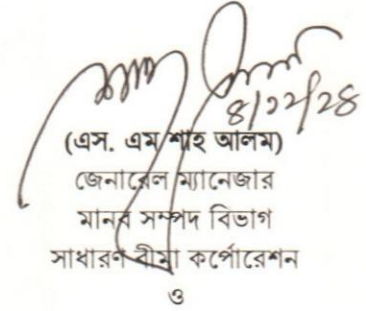 ৪/১২/২৪
(এস. এম শাহ আলম)
জেনারেল ম্যানেজার
মানব সম্পদ বিভাগ
সাধারণ বীমা কর্পোরেশন
ও